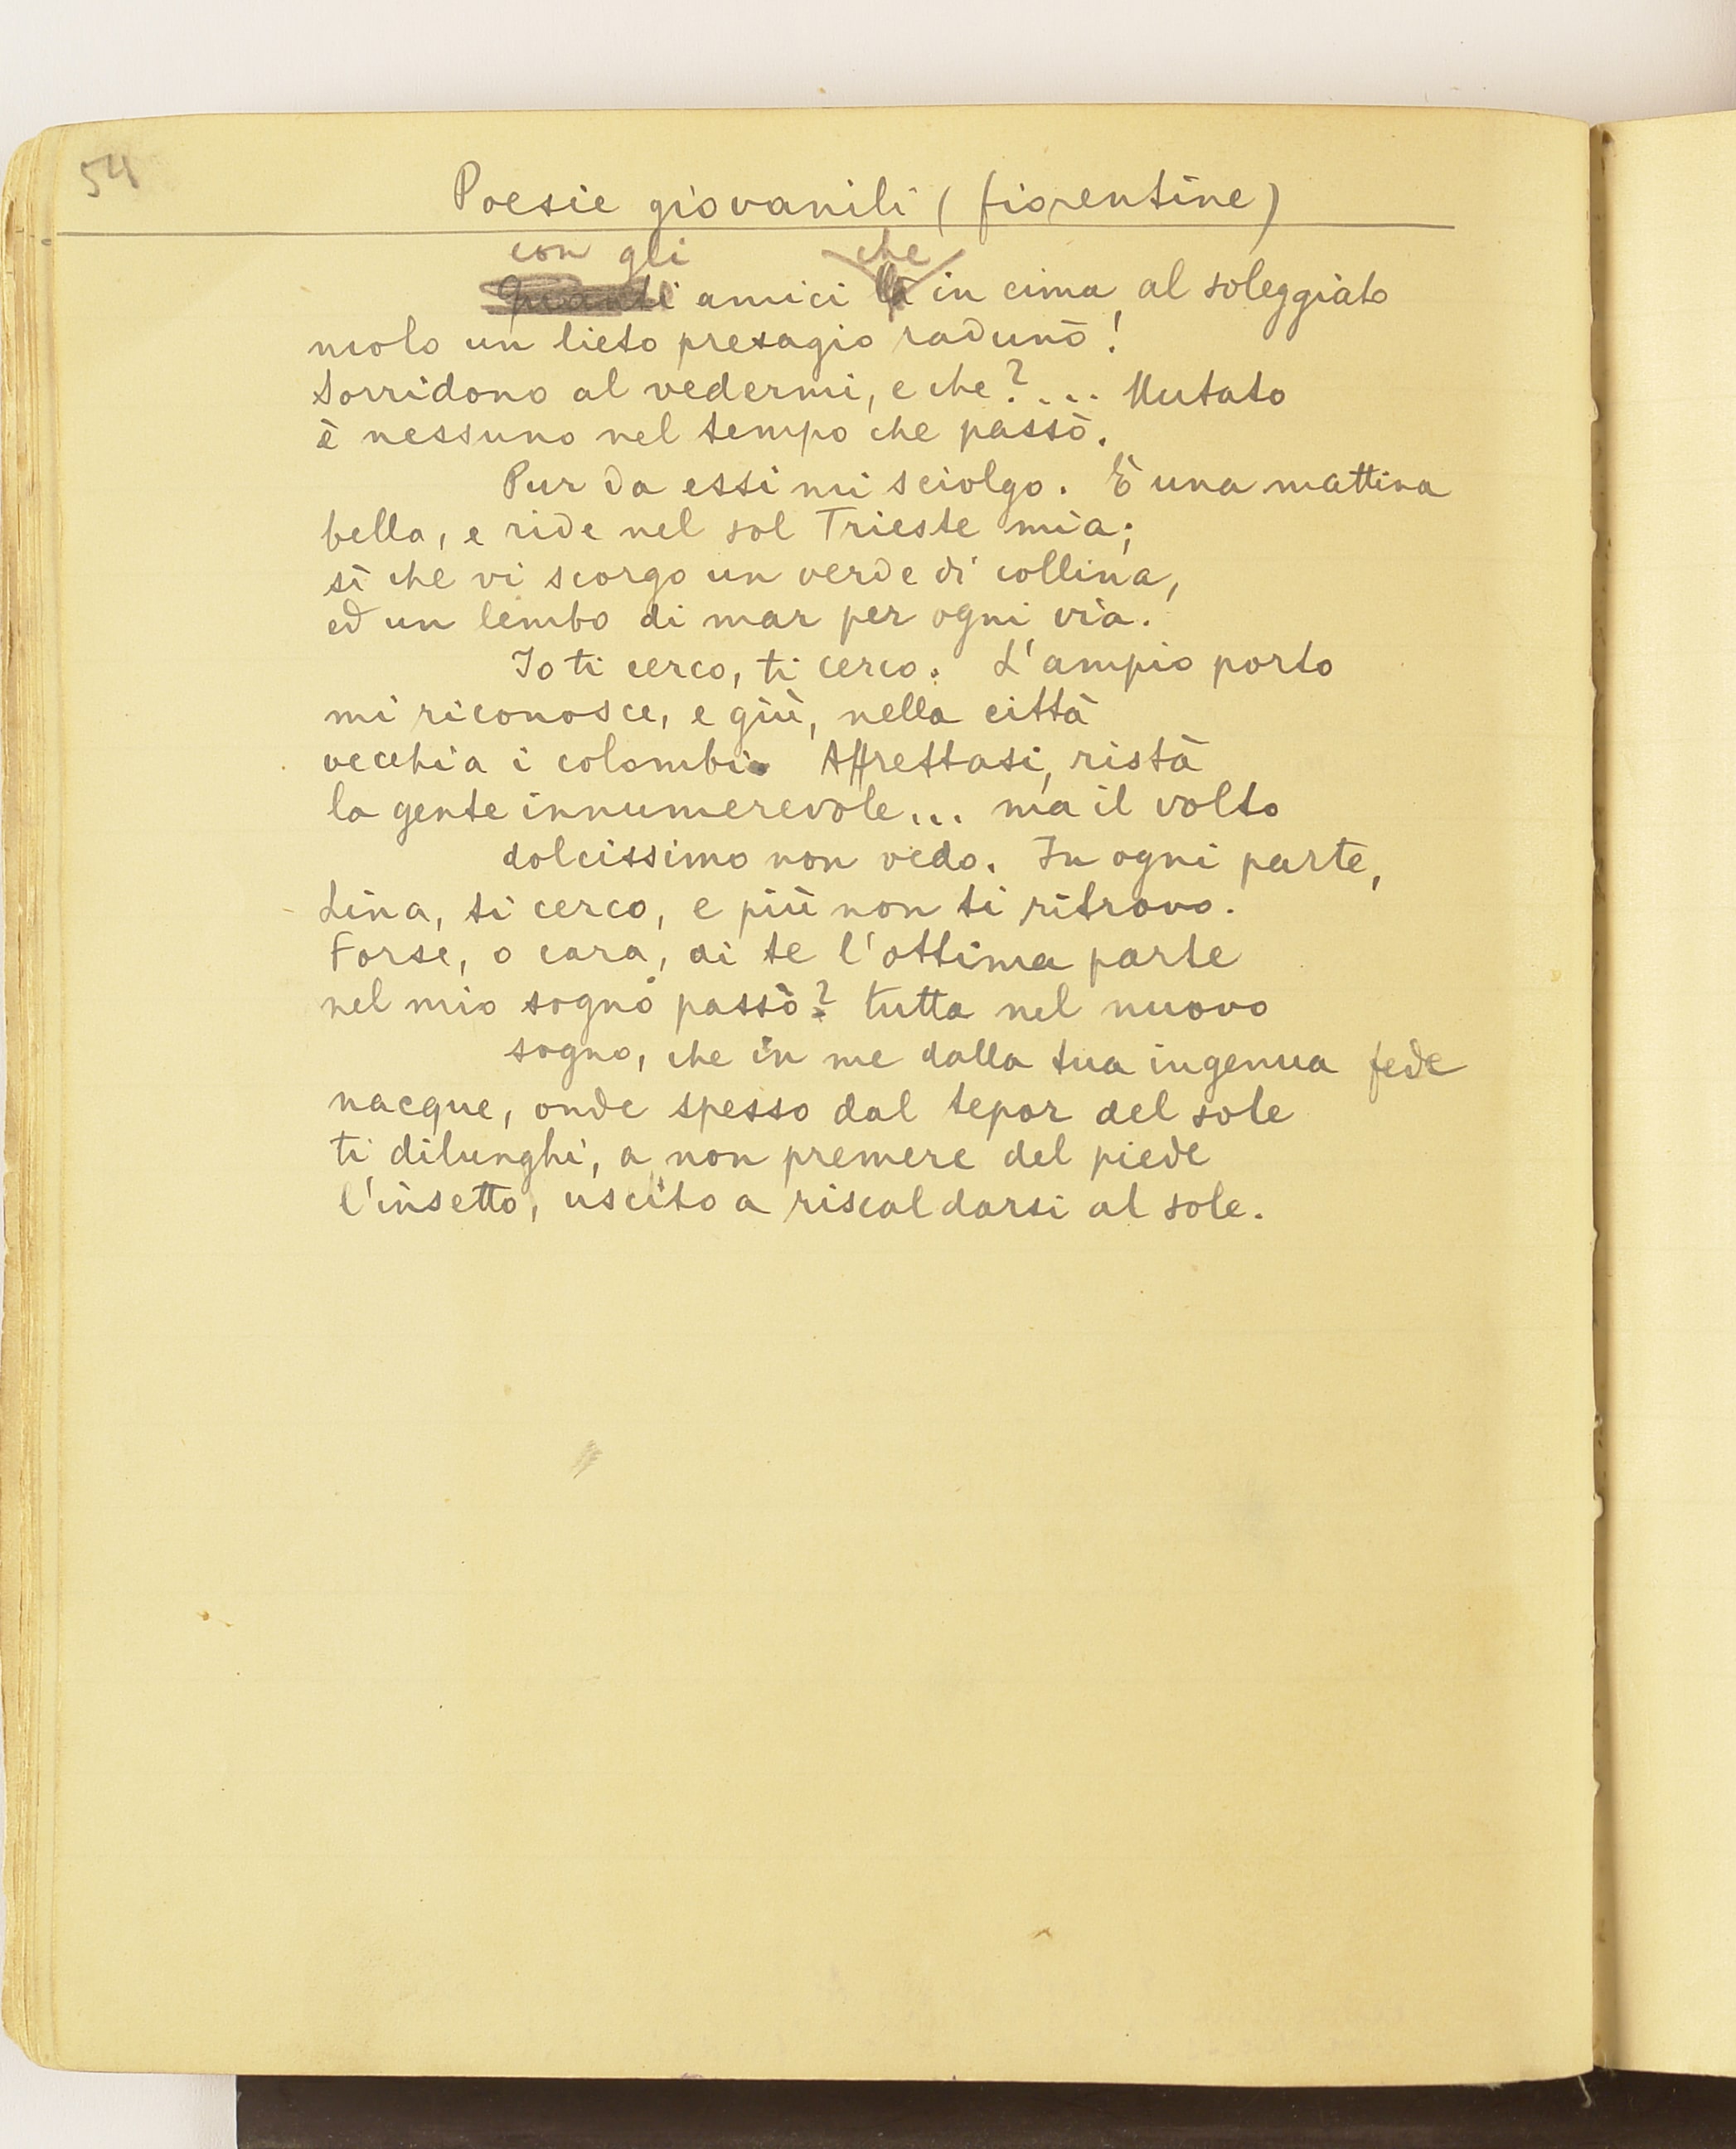 54
Poesie giovanili (fiorentine)
con gli che
Quanti amici là in cima al soleggiato
molo un lieto presagio radunò!
Sorridono al vedermi, e che?... Mutato
è nessuno nel tempo che passò.
Pur da essi mi sciolgo. È una mattina
bella, e ride nel sol Trieste mia;
sì che vi scorgo un verde di collina,
ed un lembo di mar per ogni via.
Io ti cerco, ti cerco. L'ampio porto
mi riconosce, e giù, nella città
vecchia i colombi. Affrettasi, ristà
la gente innumerevole... ma il volto
dolcissimo non vedo. In ogni parte,
Lina, ti cerco, e più non ti ritrovo.
Forse, o cara, di te l'ottima parte
nel mio sogno passò? tutta nel nuovo
sogno, che in me dalla tua ingenua fede
nacque, onde spesso dal tepor del sole
ti dilunghi, a non premere del piede
l'insetto, uscito a riscaldarsi al sole.